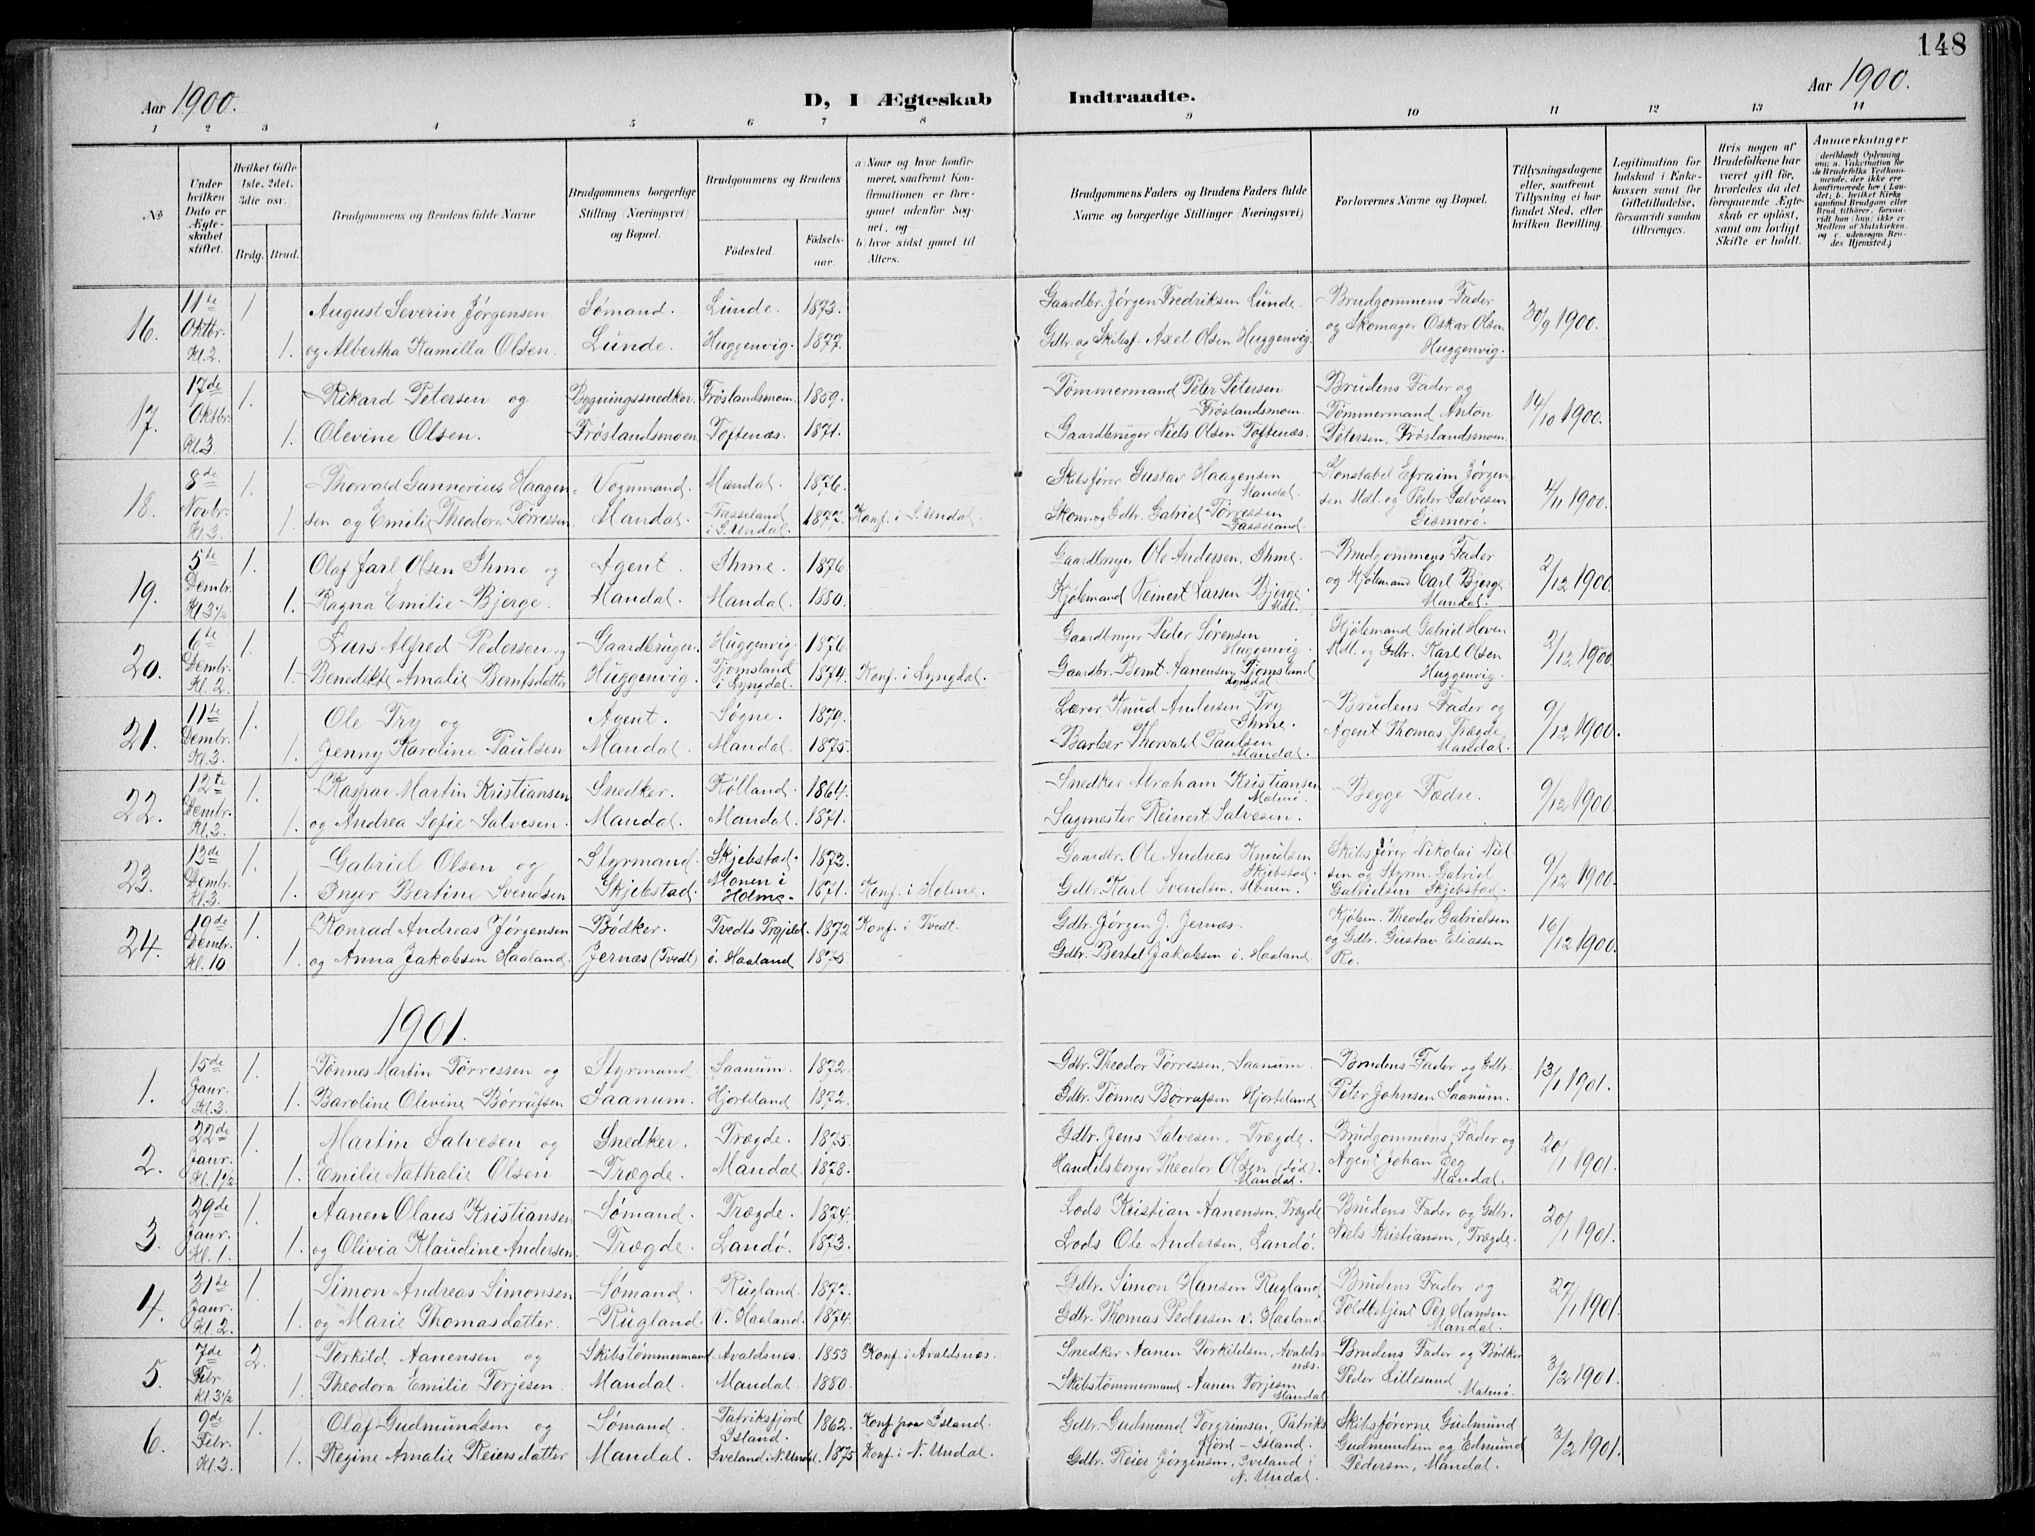 148
Aar 1900.
D, I Ægteskab Indtraadte.
Aar 1900.
1 2 3 4 5 6 7 8 9 10 11 12 13 14
No
Under hvilken Dato er Ægteskabet stiftet.
Hvilket Gifte 1ste, 2det, 3die osv.
Brdg. Brud.
Brudgommens og Brudens fulde Navne
Brudgommens borgerlige Stilling (Næringsvei) og Bopæl.
Brudgommens og Brudens
Fødested.
Fødselsaar.
a) Naar og hvor konfirmeret, saafremt Konfirmationen er foregaaet udenfor Sognet, og
b) hvor sidst gaaet til Alters.
Brudgommens Faders og Brudens Faders fulde Navne og borgerlige Stillinger (Næringsvei)
Forlovernes Navne og Bopæl.
Tillysningsdagene eller, saafremt Tillysning ei har fundet Sted, efter hvilken Bevilling.
Legitimation for Indskud i Enkekassen samt for Giftetilladelse, forsaavidt saadan tiltrænges.
Hvis nogen af Brudefolkene har været gift før, hvorledes da det foregaaende Ægteskab er opløst, samt om lovligt Skifte er holdt.
Anmærkninger
16. 11te Oktbr. Kl. 2. 1. August Severin Jørgensen Sømand. Lunde. 1873. Gaardbr. Jørgen Fredriksen Lunde. Brudgommens Fader 30/9 1900.
1. og Albertha Kamilla Olsen. Lunde. Huggenvig. 1877. Gdbr. og Skibsf. Axel Olsen Huggenvig. og Skomager Oskar Olsen Huggenvig.
17. 17de Oktbr. Kl. 3 1. Rikard Petersen og Bygningssnedker. Frøslandsmoen. 1859. Tømmermand Peter Petersen Frøslandsmoen. Brudens Fader og 14/10 1900.
1. Olevine Olsen. Frøslandsmoen. Toftenæs. 1871. Gaardbruger Niels Olsen Toftenæs. Tømmermand Anton Petersen, Frøslandsmoen.
18. 8de Novbr. Kl. 3. 1. Thorvald Gunnerius Haagen- Vognmand. Mandal. 1876. Skibsfører Gustav Haagensen Mandal. Konstabel Efraim Jørgen- 4/11 1900.
1. sen og Emilie Theodora Tørressen. Mandal. i S. Undal. 1877. Konf. i S. Undal. Skom. og Gdbr. Gabriel Tørressen sen Mdl. og Peder Salvesen Gismerø.
19. 5te Dembr. Kl. 3 1/2 1. Olaf Jarl Olsen Ihme og Agent. Ihme. 1876 Gaardbruger Ole Andersen, Ihme. Brudgommens Fader 2/12 1900.
1. Ragna Emilie Bjerge. Mandal. Mandal. 1880. Kjøbmand Reinert Larsen Bjerge. Mdl. og Kjøbmand Carl Bjerge. Mandal.
20. 6te Dembr. Kl. 2. 1. Lars Alfred Pedersen og Gaardbruger. Huggenvig. 1876 Gaardbruger Peder Sørensen Huggenvig. Kjøbmand Gabriel Hoven 2/12 1900.
1. Benedikte Amalie Berntsdatter Huggenvig. Tjomsland i Lyngdal. 1874. Konf. i Lyngdal. Gaardbr. Bernt Aanensen Tjomsland Lyngdal. Mdl. og Gdbr. Karl Olsen Huggenvig.
21. 11te Dembr. Kl. 3. 1. Ole Try og Agent. Søgne. 1870. Lærer Knud Andersen Try Ihme. Brudens Fader og 9/12 1900.
1. Jenny Karoline Paulsen Mandal. Mandal. 1875. Barber Thorvald Paulsen Mandal. Agent Thomas Trægde Mandal.
22. 12te Dembr. Kl. 3. 1. Kaspar Martin Kristiansen Snedker. Holland. 1864. Snedker Abraham Kristiansen Malmø. Begge Fædre. 9/12 1900.
1. og Andrea Sofie Salvesen. Mandal. Mandal. 1871. Sagmester Reinert Salvesen.
23. 13de Dembr. Kl. 3. 1. Gabriel Olsen og Styrmand. Skjebstad. 1873. Gaardbr. Ole Andreas Knudsen Skjebstad. Skibsfører Nikolai Niel- 9/12 1900.
1. Inger Bertine Svendsen Skjebstad. Monen i Holme. 1871. Konf. i Holme. Gdbr. Karl Svendsen, Monen. sen og Styrm. Gabriel Gabrielsen Skjebstad.
24. 19de Dembr. Kl. 10 1. Konrad Andreas Jørgensen Bødker. Tvedts Prgjeld. 1872 Konf. i Tvedt. Gdbr. Jørgen J. Jernæs. Kjøbm. Theodor Gabrielsen 16/12 1900.
1. og Anna Jakobsen Haaland. Jernæs (Tvedt) i. Haaland 1875 Gdbr. Bertel Jakobsen i. Haaland. og Gdbr. Gustav Eliassen Ro.
1901.
1. 15de Janr. Kl. 3. 1. Tønnes Martin Tørressen og Styrmand. Saanum. 1872. Gdbr. Theodor Tørressen, Saanum. Brudens Fader og Gdbr. 13/1 1901.
1. Baroline Olevine Børrufsen Saanum. Hjorteland 1872. Gdbr. Tønnes Børrufsen Hjorteland Peter Johnsen Saanum.
2. 22de Janr. Kl. 1 1/2 1. Martin Salvesen og Snedker. Trægde. 1875. Gdbr. Jens Salvesen, Trægde. Brudgommens Fader og 20/1 1901.
1. Emilie Nathalie Olsen Trægde. Mandal. 1878. Handelsborger Theodor Olsen (død). Mandal. Agent Johan Eeg Mandal.
3. 29de Janr. Kl. 1. 1. Aanen Olaus Kristiansen Sømand. Trægde. 1874. Lods Kristian Aanensen, Trægde Brudens Fader og Gdbr. 20/1 1901.
1. og Olivia Klaudine Andersen. Trægde. Landø. 1873. Lods Ole Andersen, Landø. Niels Kristiansen, Trægde.
4. 31de Janr. Kl. 2. 1. Simon Andreas Simonsen Sømand. Rugland. 1877. Gdbr. Simon Hansen Rugland. Brudens Fader og 27/1 1901.
1. og Marie Thomasdatter. Rugland. v. Haaland. 1874. Gdbr. Thomas Pedersen v. Haaland Toldbetjent Per Hansen Mandal.
5. 7de Febr Kl. 3 1/2 2. Torkild Aanensen og Skibstømmermand Avaldsnæs. 1853 Konf. i Avaldsnæs. Snedker Aanen Torkildsen, Avaldsnæs. Brudens Fader og Bødker 3/2 1901.
1. Theodora Emilie Torjesen. Mandal. Mandal. 1880. Skibstømmermand Aanen Torjesen Mandal Peder Lillesund Malmø.
6. 9de Febr. Kl. 3. 1. Olaf Gudmundsen og Sømand. Patriksfjord Island. 1862. Konf. paa Island. Gdbr. Gudmund Torgrimsen, Patriksfjord - Island. Skibsførerne Gudmund 3/2 1901.
1. Regine Amalie Reiersdatter Mandal. Iveland i N. Undal. 1875 Konf. i N. Undal. Gdbr. Reier Jørgensen, Iveland i N. Undal. Gudmundsen og Edmund Pedersen, Mandal.